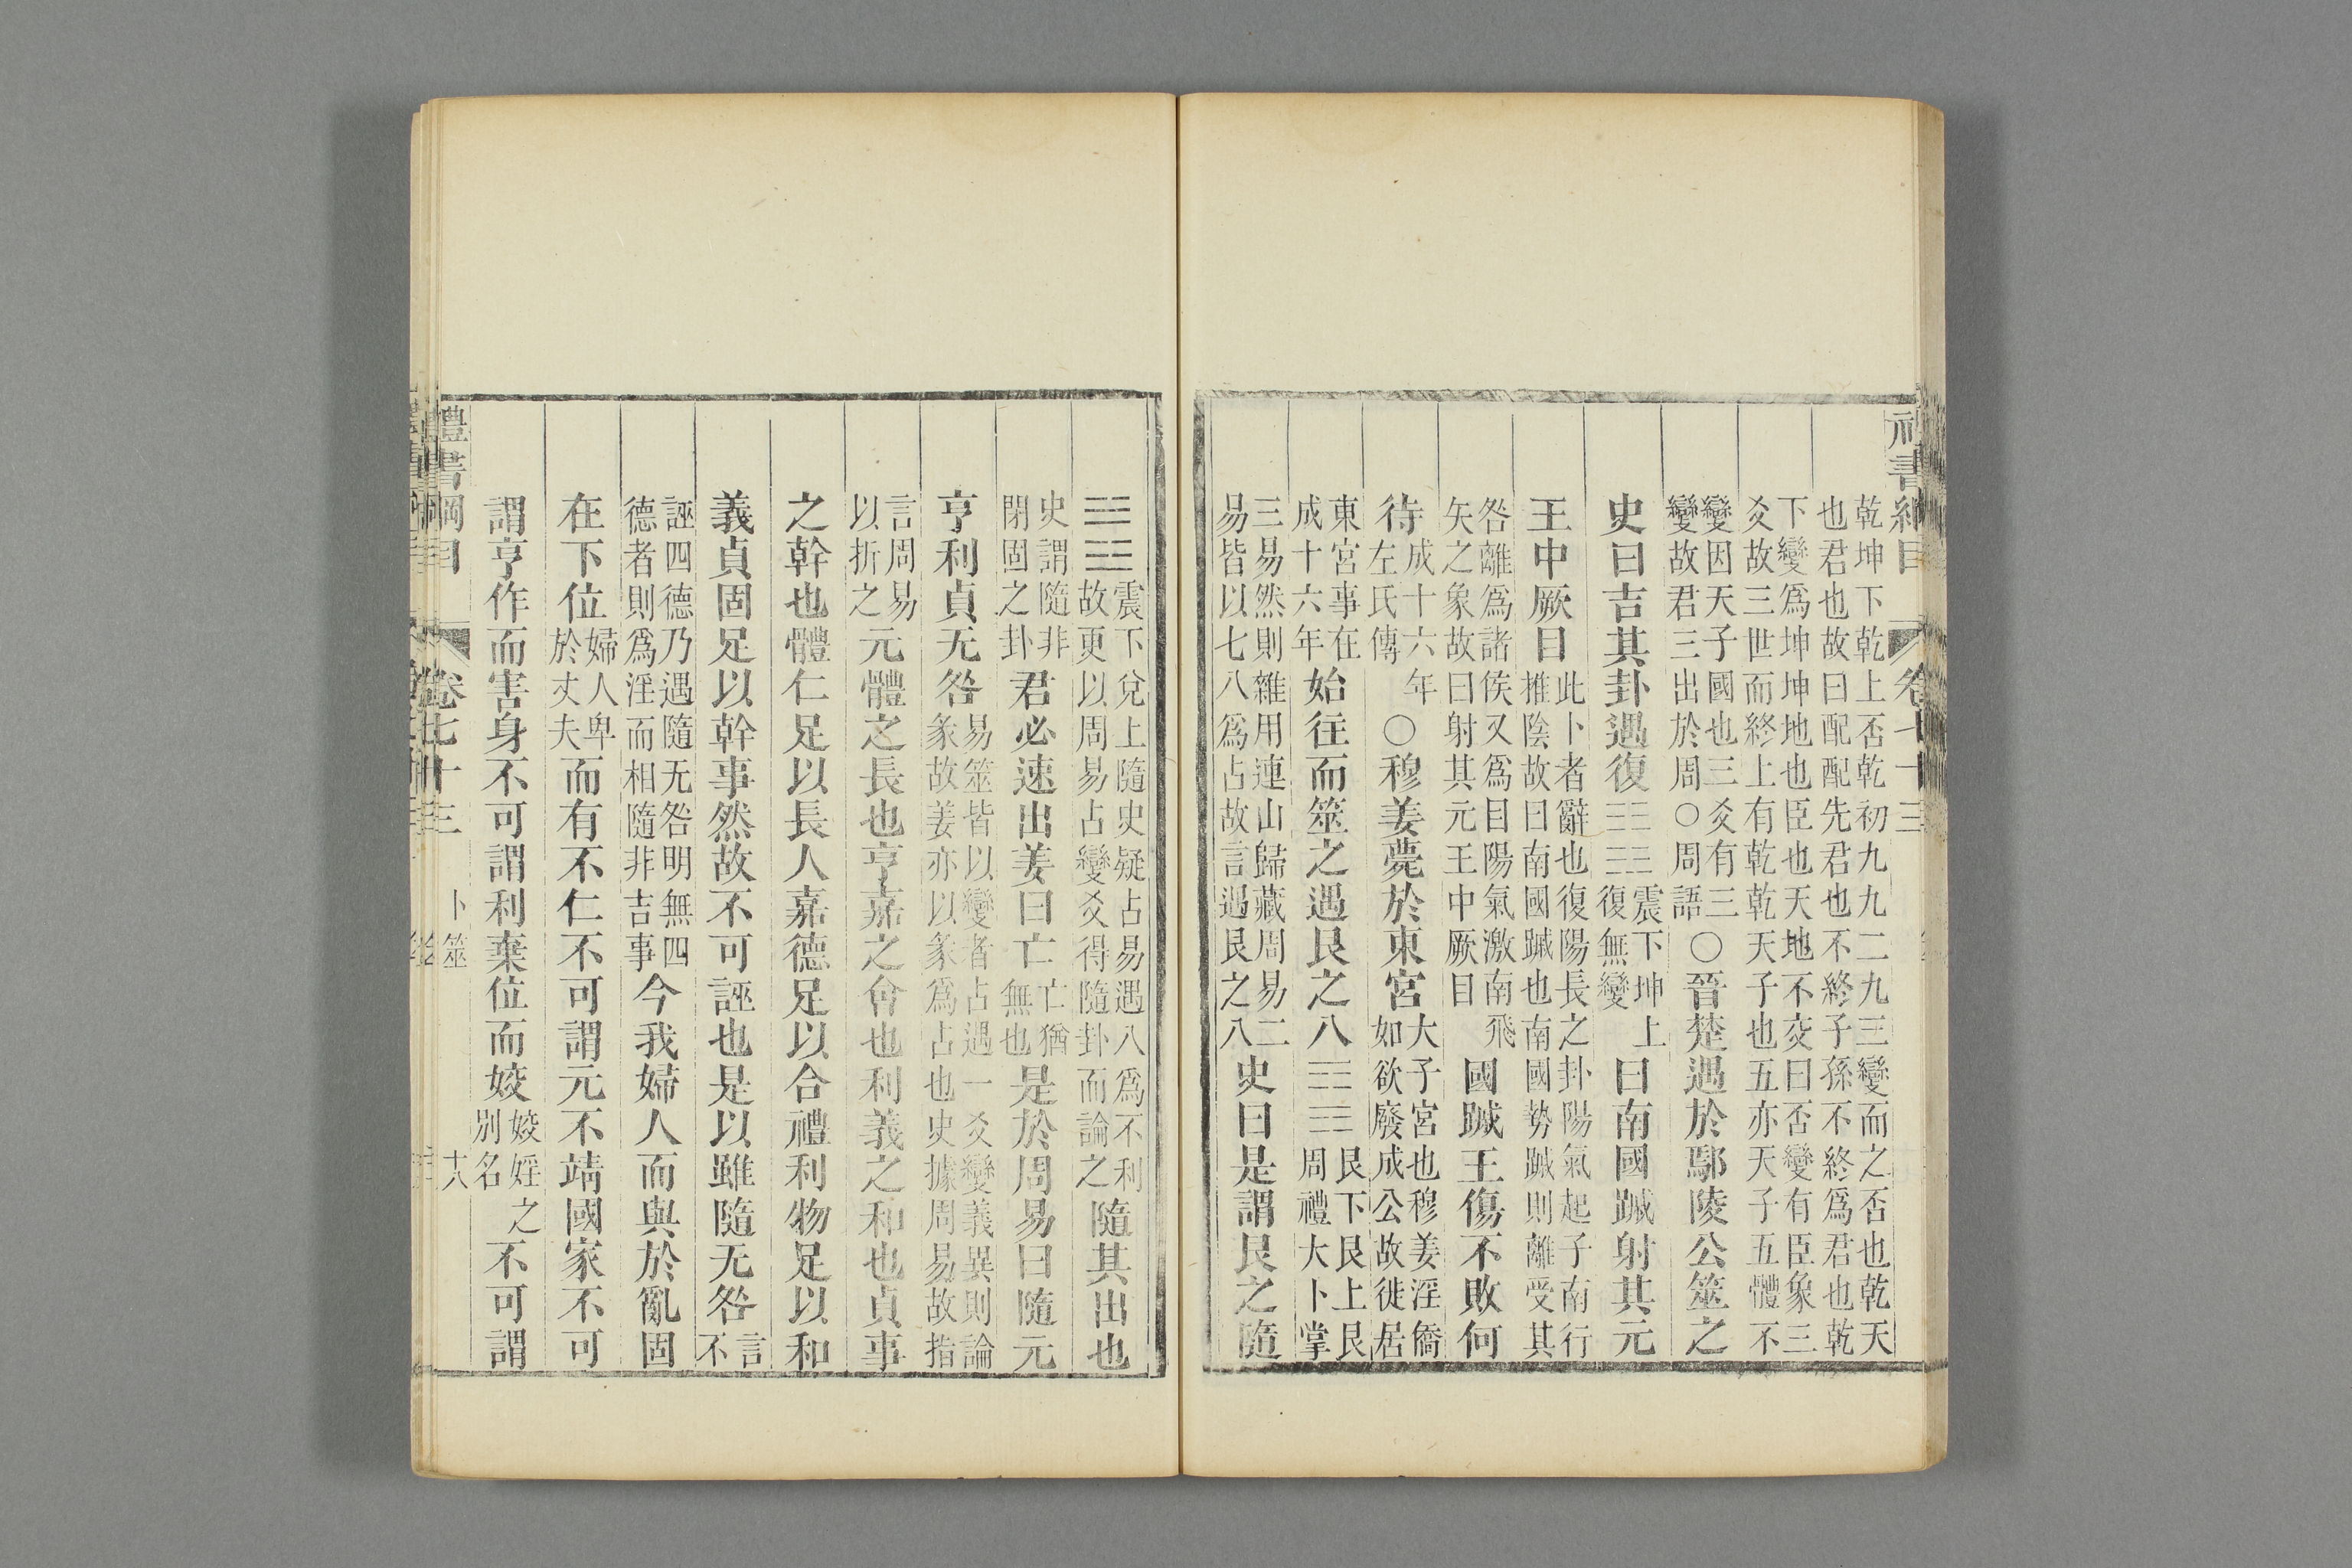 禮書綱目 卷七十三
乾坤下乾上否乾初九九二九三變而之否也乾天
也君也故曰配配先君也不終子孫不終爲君也乾
下變爲坤坤地也臣也天地不交曰否變有臣象三
爻故三世而終上有乾乾天子也五亦天子五體不
變因天子國也三爻有三
變故君三出於周○周語
〇晉楚遇於鄢陵公筮之
史曰吉其卦遇復䷗震下坤上復無變曰南國䠞射其元
王中厥目
此卜者辭也復陽長之卦陽氣起子南行
推陰故曰南國䠞也南國勢䠞則離受其
咎離爲諸侯又爲目陽氣激南飛
矢之象故曰射其元王中厥目
國䠞王傷不敗何
待成十六年左氏傳〇穆姜薨於東宮
大子宮也穆姜淫僑
如欲廢成公故徙居
東宮事在
成十六年
始往而筮之遇艮之八䷳
艮下艮上艮
周禮大卜掌
三易然則雜用連山歸藏周易二
易皆以七八爲占故言遇艮之八
史曰是謂艮之隨
䷐
震下兌上隨史疑占易遇八爲不利
故更以周易占變爻得隨卦而論之
隨其出也
史謂隨非
閉固之卦
君必速出姜曰亡亡猶無也是於周易曰隨元
亨利貞无咎
易筮皆以變者占遇一爻變義異則論
彖故姜亦以彖爲占也史據周易故指
言周易
以折之
元體之長也亨嘉之會也利義之和也貞事
之幹也體仁足以長人嘉德足以合禮利物足以和
義貞固足以幹事然故不可誣也是以雖隨无咎言不
誣四德乃遇隨无咎明無四
德者則爲淫而相隨非吉事
今我婦人而與於亂固
在下位婦人卑於丈夫而有不仁不可謂元不靖國家不可
謂亨作而害身不可謂利棄位而姣姣婬之別名不可謂
禮書綱目 卷七十三 卜筮 十八